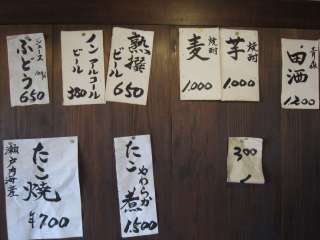 ジュース
ぶどう
650
ノンアルコール
ビール
350
熟撰
ビール
650
麦
焼酎
1000
芋
焼酎
1000
青森
田酒
1200
瀬戸内海産
たこ焼
¥700
やわらか
たこ煮
1500
300